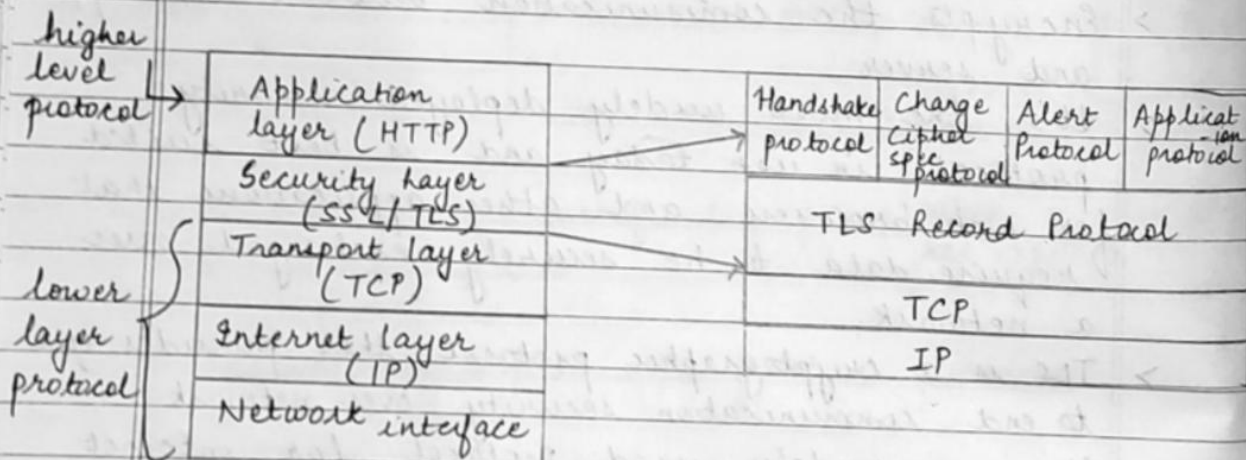 higher
level
protocol
Application
layer (HTTP)
Security Layer
(SSL/TLS)
Transport layer
(TCP)
Internet layer
(IP)
Network interface
lower
layer
protocol
Handshake
protocol
Change
Cipher
spec
protocol
Alert
Protocol
Applicat
-ion
protocol
TLS Record Protocol
TCP
IP